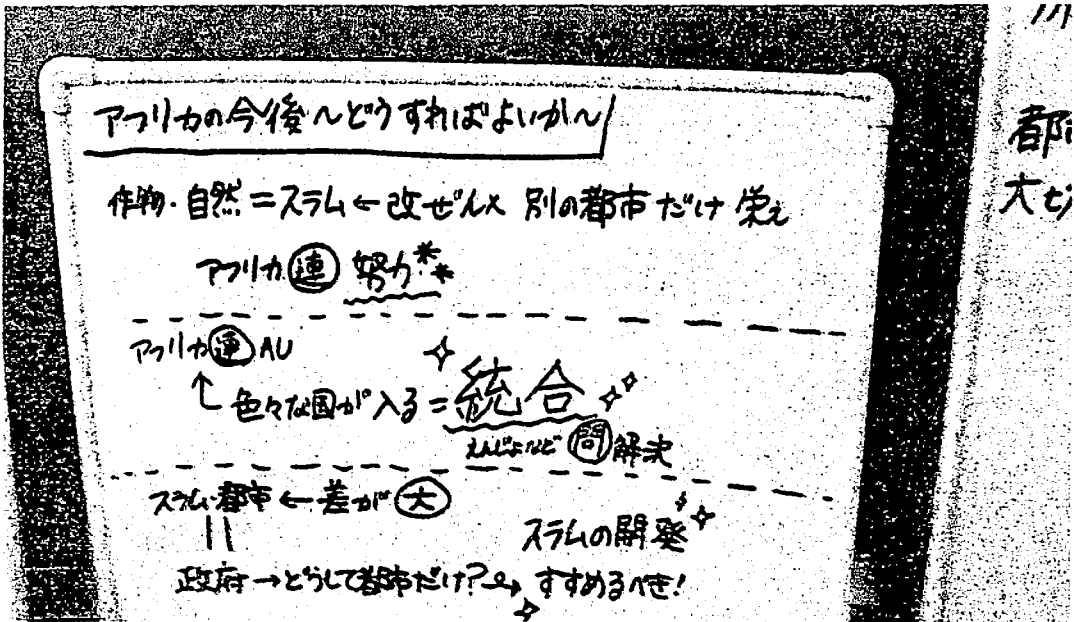 アフリカの今後～どうすればよいか～
作物・自然=スラム←改ぜん× 別の都市だけ栄え
アフリカ連 努力**
アフリカ連 AU
↑色々な国が入る=統合
えんじょなど 問解決
スラム・都市←差が大
スラムの開発
政府→どうして都市だけ?→すすめるべき!
都
大